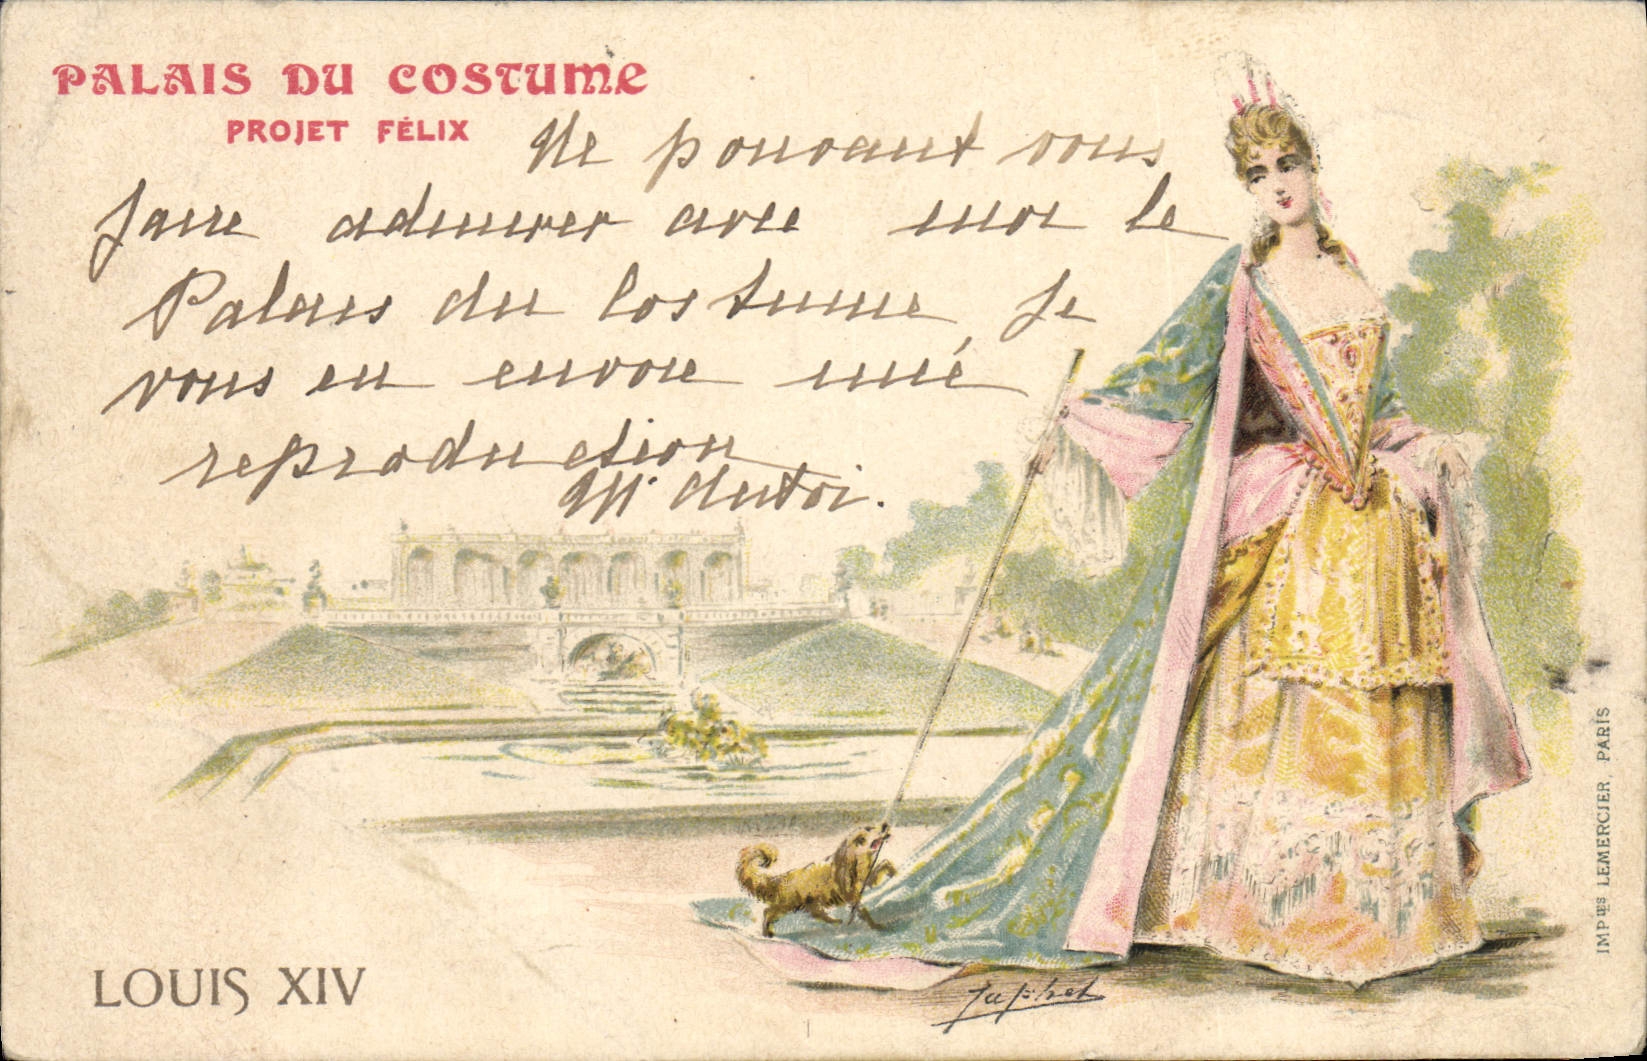 PALAIS DU COSTUME
PROJET FÉLIX
Ne pouvant vous
faire admirer avec moi le
Palais du Costume, je
vous en envoie une
reproduction
M. Dutoi.
LOUIS XIV
Japhet
IMP IES LEMERCIER, PARIS